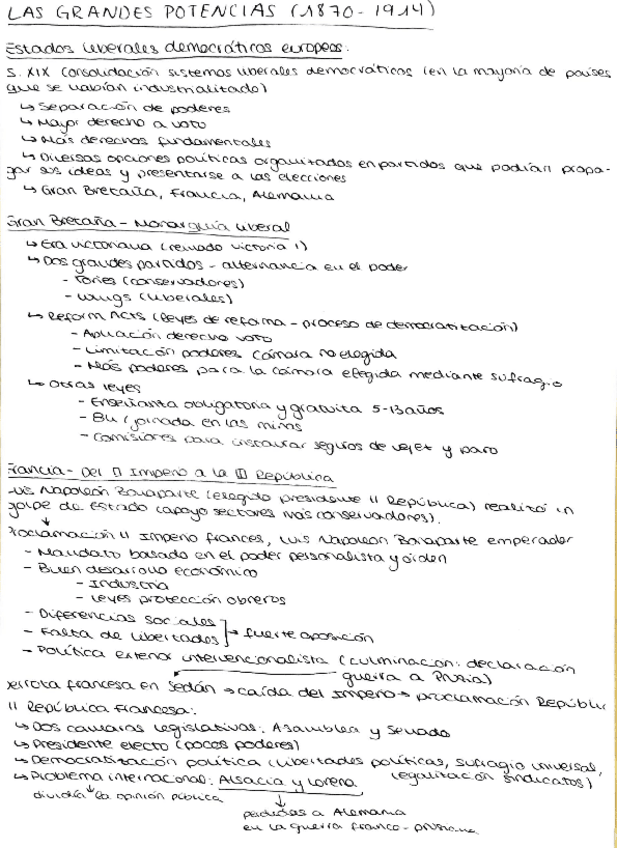 LAS GRANDES POTENCIAS (1870-1914)
Estados liberales democráticos europeos.
S. XIX Consolidación sistemas liberales democráticos (en la mayoría de países
que se habían industralitado)
↳ Separación de poderes
↳ Mayor derecho a voto
↳ Más derechos fundamentales
↳ Diversas opciones políticas organizadas en partidos que podían propa-
gar sus ideas y presentarse a las elecciones
↳ Gran Bretaña, Francia, Alemania
Gran Bretaña - Monarquía liberal
↳ Era victoriana (reinado Victoria I)
↳ Dos grandes partidos - alternancia en el poder
- Tories (conservadores)
- Whigs (liberales)
↳ Reform Acts (leyes de reforma - proceso de democratización)
- Apliación derecho voto
- Limitación poderes Cámara no elegida
- Más poderes para la cámara elegida mediante sufragio
↳ Otras leyes
- Enseñanza obligatoria y gratuita 5-13 años
- 8h/jornada en las minas
- Comisiones para instaurar seguros de vejez y paro
Francia - Del II Imperio a la III República
Luis Napoleón Bonaparte (elegido presidente II República) realizó un
golpe de Estado (apoyo sectores más conservadores).
↓
Proclamación II Imperio francés, Luis Napoleón Bonaparte emperador
- Mandato basado en el poder personalista y orden
- Buen desarrollo económico
- Industria
- Leyes protección obreros
- Diferencias sociales
- Falta de libertades → fuerte oposición
- Política exterior intervencionalista (culminación: declaración
guerra a Prusia)
Derrota francesa en Sedán → caída del Imperio → proclamación Repúbli
II República Francesa:
↳ Dos cámaras legislativas: Asamblea y Senado
↳ Presidente electo (pocos poderes)
↳ Democratización política (libertades políticas, sufragio universal,
legalización sindicatos)
↳ Problema internacional: Alsacia y Lorena
dividía la opinión pública
perdidas a Alemania
en la guerra franco-prusiana